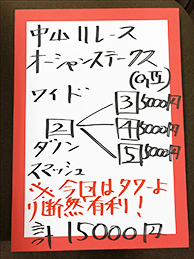 中山11レース
オーシャンステークス
(GⅢ)
ワイド
3 5000円
2 4 5000円
5 5000円
ダノン
スマッシュ
※今日はタワーよ
り断然有利!
計15000円